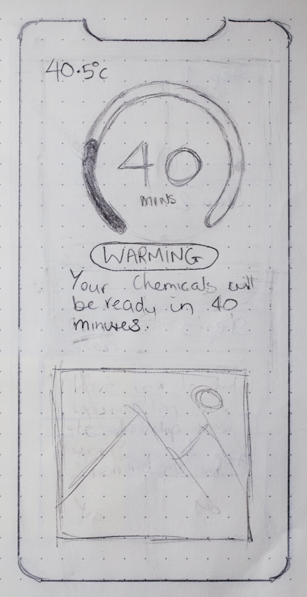 40.5°c
40
MINS
WARMING
Your Chemicals will
be ready in 40
minutes.